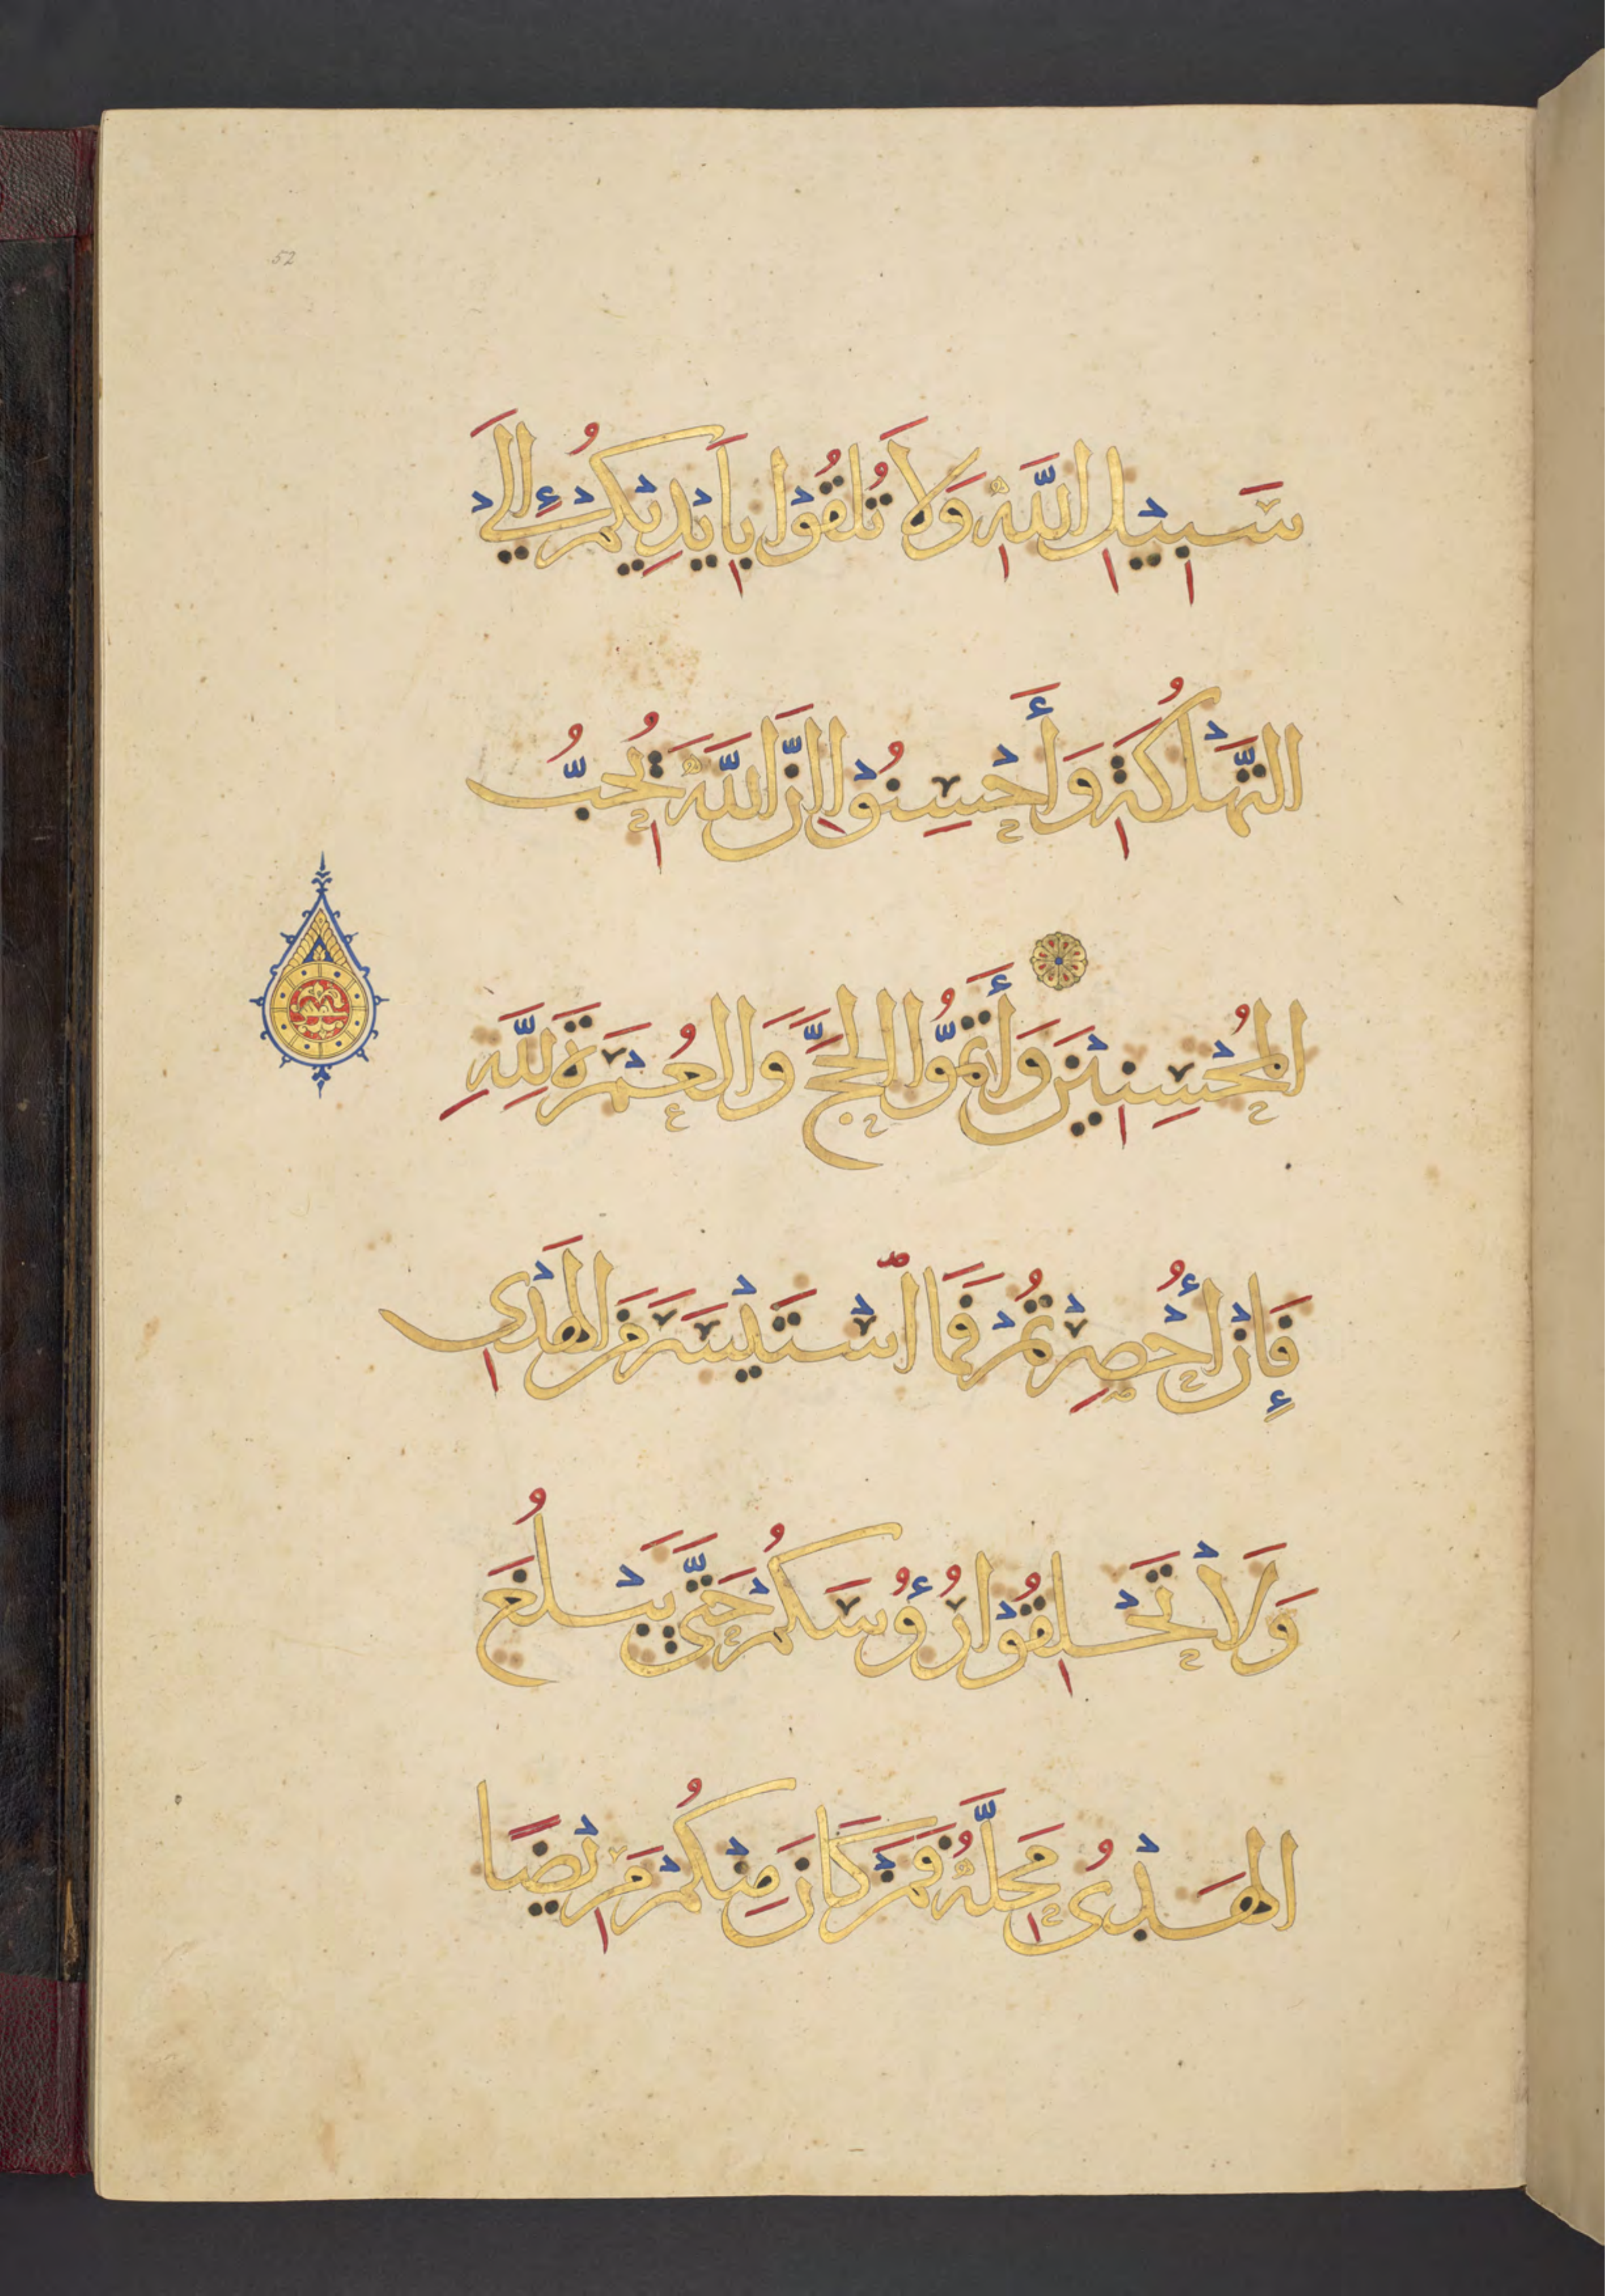 52
سَبِيْلِ اللّٰهِ وَلَا تُلْقُوْا بِاَيْدِيْكُمْ اِلَى
التَّهْلُكَةِ وَأَحْسِنُوْا اِنَّ اللّٰهَ يُحِبُّ
الْمُحْسِنِيْنَ وَأَتِمُّوا الْحَجَّ وَالْعُمْرَةَ لِلّٰهِ
فَإِنْ أُحْصِرْتُمْ فَمَا اسْتَيْسَرَ مِنَ الْهَدْيِ
وَلَا تَحْلِقُوْا رُؤُسَكُمْ حَتّٰى يَبْلُغَ
الْهَدْىُ مَحِلَّهُ فَمَنْ كَانَ مِنْكُمْ مَرِيْضًا